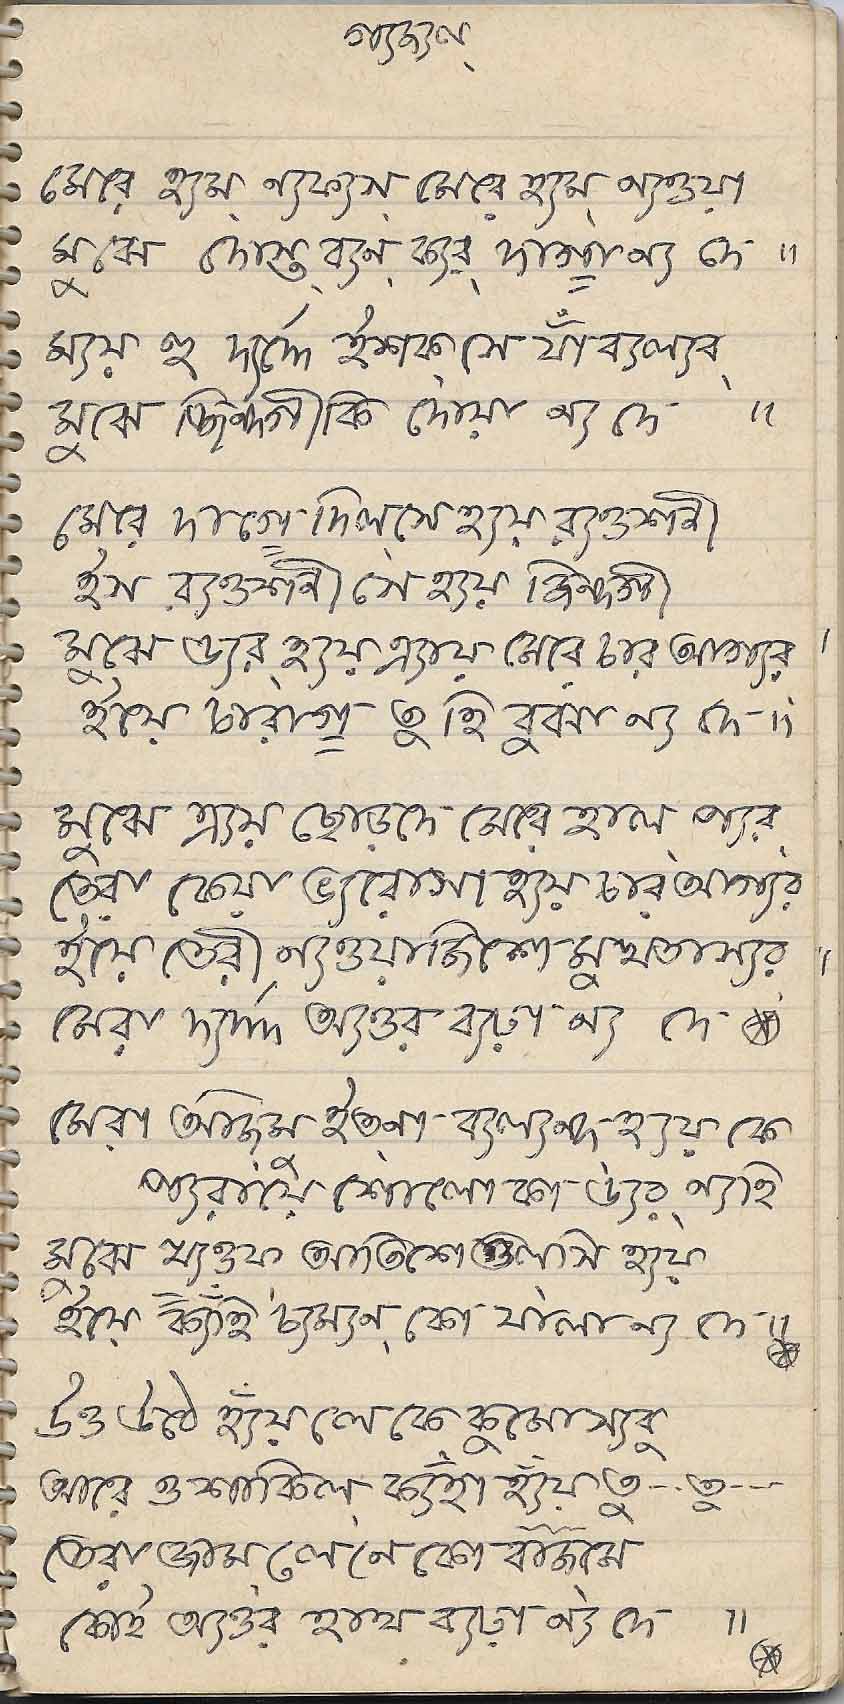 গ্যজ্যল্
মেরে হ্যম্ ন্যফ্যস্ মেরে হ্যম্ ন্যওয়া
মুঝে দোস্ত্ ব্যন্ ক্যর্ দাগা ন্য দে ॥
ম্যয় হুঁ দ্যর্দে ইশক্ সে যাঁ ব্যল্যব্
মুঝে জিন্দগী কি দোয়া ন্য দে ॥
মেরে দাগে দিল্ সে হ্যয় র‍্যওশনী
ইস র‍্যওশনী সে হ্যয় জিন্দগী
মুঝে ড্যর্ হ্যয় এ্যায় মেরে চার আগ্যর্ ।
ইয়ে চারাগ্ তু হি বুঝা ন্য দে ॥
মুঝে এ্যয় ছোড়দে মেরে হাল্ প্যর্
তেরা কেয়া ভ্যরোসা হ্যয় চার্ আগ্যর
ইয়ে তেরী ন্যওয়াজিশে মুখতাস্যর ॥
মেরা দ্যর্দ অ্যওর ব্যঢ়া ন্য দে
মেরা আজম্ ইতনা ব্যল্যন্দ হ্যয় কে
প্যরায়ে শোলো কা ড্যর্ ন্যহি
মুঝে খ্যওফ্ আতিশে গুল্ সে হ্যয়
ইয়ে ক্যহিঁ চ্যম্যন্ কো যালা ন্য দে ॥
উও উঠে হ্যঁয় লে কে খুমোস্যবু
আরে ও শাকিল্ ক্যহাঁ হ্যঁয় তু --- তু ---
তেরা জাম্ লেনে কো বাজমে
কোই অ্যওর হাথ্ ব্যঢ়া ন্য দে ॥